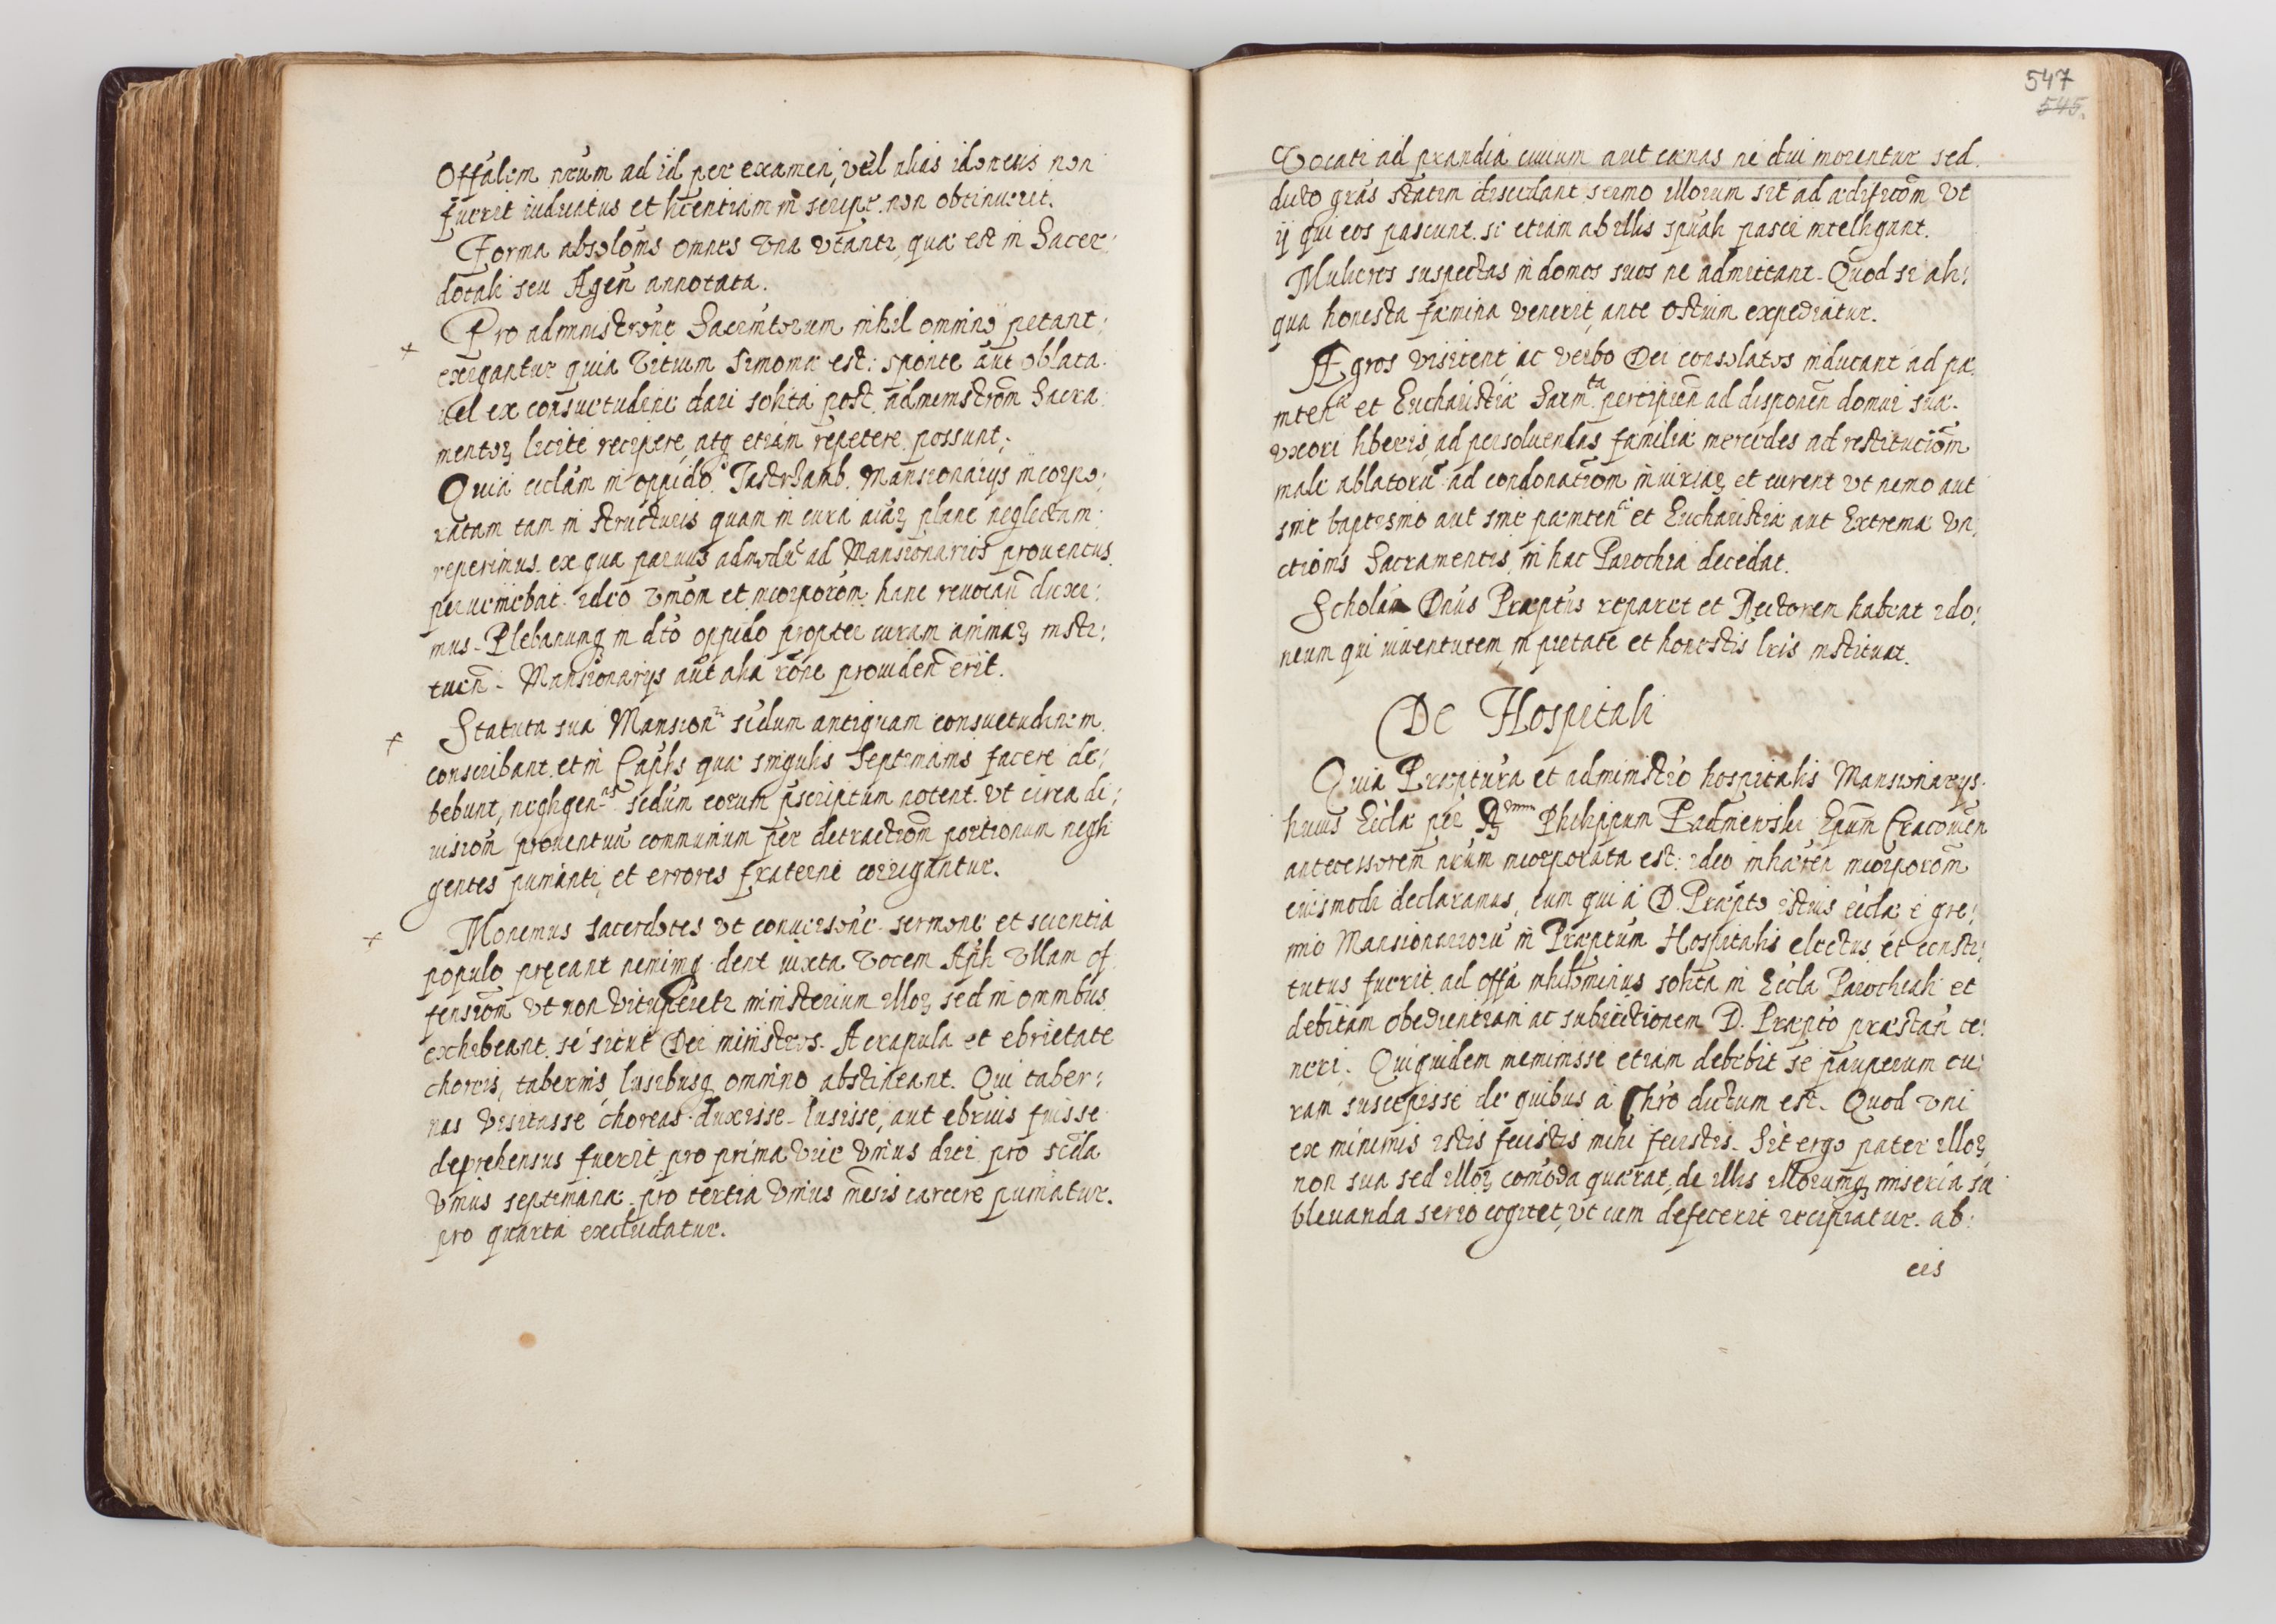 Offalem nrum ad id per examen, vel alias idoneus non
fuerit iudicatus et licentiam in script. non obtinuerit.
Forma absolonis omnes una utantr, quae est in Sacer:
dotali seu Agen annotata.
Pro administrone Sacrmtorum nihil omnino petant;
exigantur quia vitium Simoniae est: sponte aut oblata
vel ex consuetudine dari solita post administrom Sacra
mentorz licite recipere, atq etiam repetere possunt;
Quia ecclam in oppido Mansionarys incorpo:
ratam tam in structuris quam in cura aiarz plane neglectam
reperimus. ex qua parvus admodu ad Mansionarios proventus
perveniebat. ideo uniom et incorporom hanc revocan duxi:
mus. Plebanumq in dto oppido propter curam animarz insti:
tuen. Mansionarys aut alia rone providen erit.
Statuta sua Mansionr scdum antiquam consuetudinem
conscribant. et in Caplis quae singulis Septimanis facere de:
bebunt, negligenas scdum eorum pscriptum notent. ut circa di:
visiom proventuu communium per detractiom portionum negli
gentes puniantr, et errores fraterne corrigantur.
Monemus sacerdotes ut conversone sermone et scientia
populo pręeant neminiq dent iuxta vocem Apli ullam of
fensiom ut non vituperetr ministerium illorz sed in omnibus
exhibeant se sicut Dei ministros. A crapula et ebrietate
choreis, tabernis lusibusq omnino abstineant. Qui taber:
nas visitasse choreas duxisse lusisse, aut ebrius fuisse
deprehensus fuerit pro prima vice unius diei pro scda
unius septimanae pro tertia unius mesis carcere puniatur.
pro quarta excludatur.
547
545.
Vocati ad prandia civium aut caenas ne diu morentur sed
dicto gras statim discedant sermo illorum sit ad aedificom ut
ij qui eos pascunt. se etiam ab illis spuali pasci intelligant.
Mulieres suspectas in domos suos ne admittant. Quod si ali:
qua honesta faemina venerit, ante ostium expediatur.
Ægros visitent, ac verbo Dei consolatos inducant ad pae
nitenae et Eucharistiae Sacmta percipien ad disponen domui suae
uxori liberis, ad persolvendas familiae mercedes ad restituciom
male ablatoru ad condonatiom iniuriarz et curent ut nemo aut
sine baptismo aut sine paenitena et Eucharistiae aut Extremae Un
ctionis Sacramentis, in hac Parochia decedat.
Scholam Dnus Praeptus reparet et Rectorem habeat ido:
neum qui iuventutem in pietate et honestis lris instituat.
De Hospitali
Quia Praeptura et administrio hospitalis Mansionarys
huius Eccla per Rz Philippum Padniewski Epum Cracovien
antecessorem nrum incorporata est: ideo inhaeren incorporom
eiusmodi declaramus, eum qui a D. Praepto istius eccla e gre:
mio Mansionarioru in Praeptum Hospitalis electus et consti:
tutus fuerit. ad offa nihilominus solita in Eccla Parochiali et
debitam obedientiam ac subiectionem D. Praepto praestan te:
neri. Qui quidem meminisse etiam debebit se pauperum cu:
ram suscepisse de quibus a Chro dictum est. Quod uni
ex minimis istis fecistis mihi fecistis. Sit ergo pater illorz
non sua sed illorz comoda quaerat, de illis illorumq miseria su
blevanda serio cogitet, ut cum defecerit recipiatur. ab:
eis